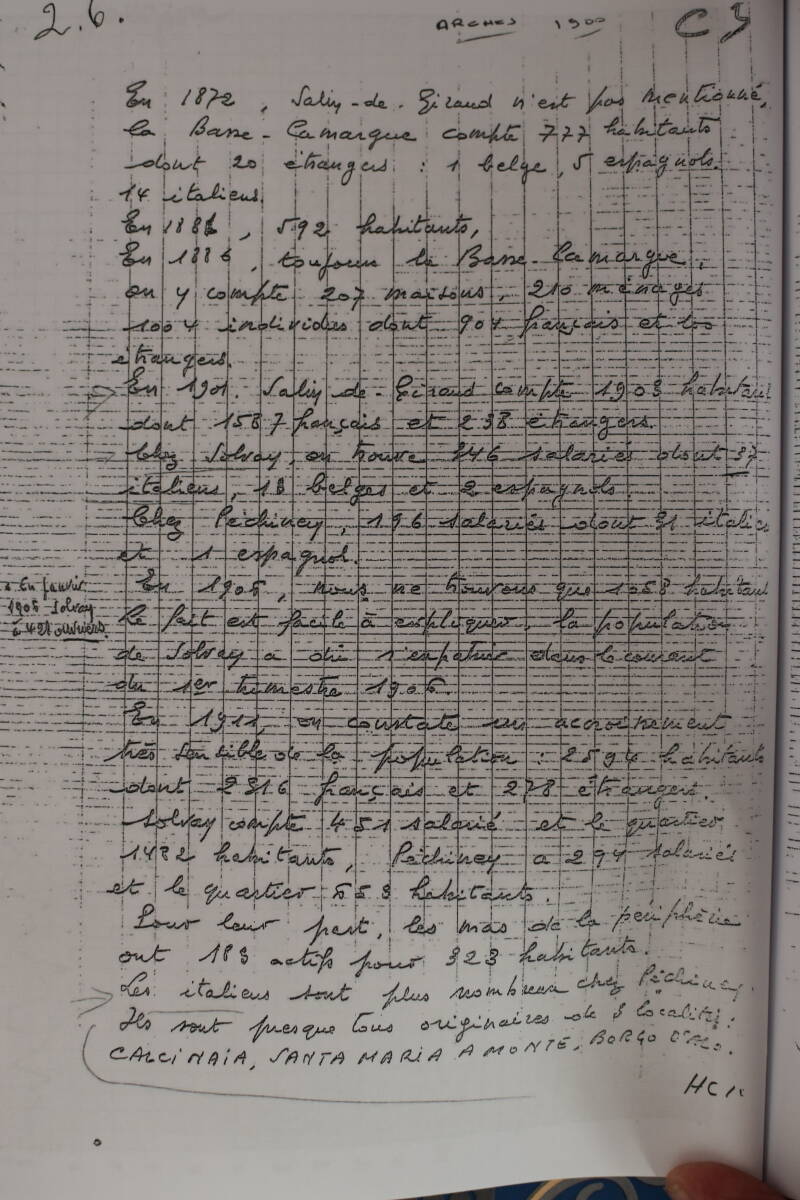 2.6.
ARCHES 1900
En 1872, Salin-de-Giraud n'est pas mentionné,
la Basse-Camargue compte 777 habitants
dont 20 étrangers : 1 belge, 5 espagnols.
14 italiens.
En 1881, 592 habitants,
En 1886, toujours la Basse-Camargue,
on y compte 207 maisons, 210 ménages
1004 individus dont 904 français et 100
étrangers.
En 1901. Salin-de-Giraud compte 1903 habitant
dont 1587 français et 238 étrangers.
Chez Solvay, on trouve 346 salariés dont 37
italiens, 18 belges et 2 espagnols.
Chez Péchiney, 196 salariés dont 31 italie
et 1 espagnol.
En 1906, nous ne trouvons que 1058 habitant
Le fait est facile à expliquer, la population
de Solvay a dû s'expatrier dans le courant
du 1er trimestre 1906.
En janvier
1906 Solvay
à 421 ouvriers.
En 1911, on constate un accroissement
très sensible de la population : 2594 habitants
dont 2316 français et 278 étrangers.
Solvay compte 451 salarié et le quartier
1482 habitants, Péchiney a 294 salariés
et le quartier 553 habitants.
Pour leur part, les mas de la périphérie
ont 183 actifs pour 323 habitants.
Les italiens sont plus nombreux chez Péchiney.
Ils sont presque tous originaires de 3 localités :
CALCINAIA, SANTA MARIA A MONTE, BORGO